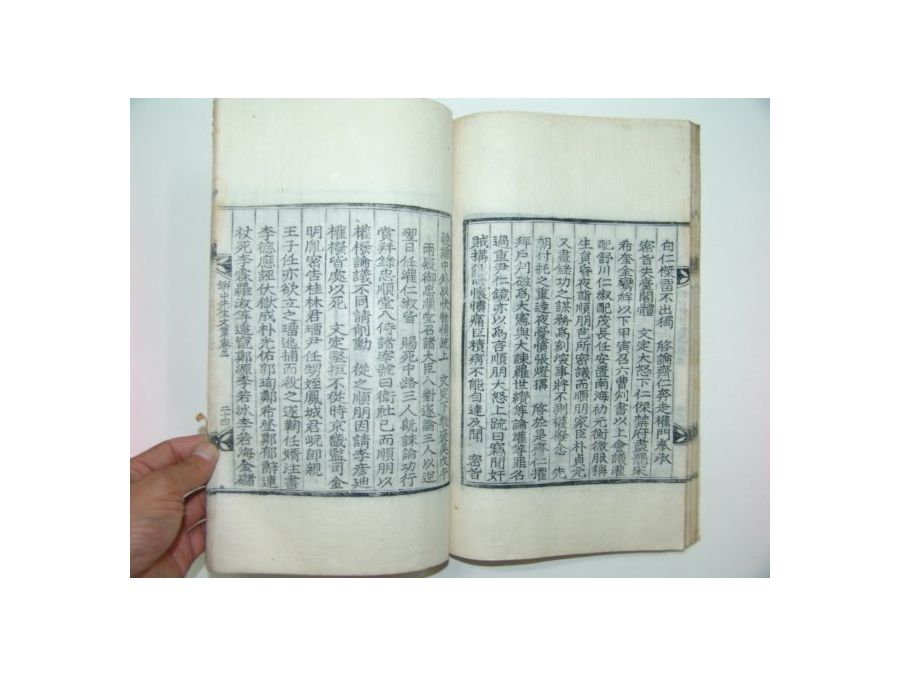 白仁傑囬不出獨 啓論齊仁奔走權門奉承
密旨失臺閣體 文定大怒下仁傑禁府盡罷宋
希奎金鸞祥以下甲寅召六曹判書以上會議灌
配舒川仁淑配茂長任安置南海初元衡微服稱
生員昏夜詣順朋芑所密議而順朋家臣朴貞元
又晝錄功之謀務爲刻深事將不測權橃念 先
朝付托之重達夜憂憤張燈撰 啓於是齊仁擢
拜戶判磁爲大憲與大諫羅世纘等論灌等罪名
過重尹仁鏡亦以爲言順朋大怒上疏曰竊聞奸
賊搆 懷憤痛巨積病不能自達及聞 密旨
中外以快物情疏上 文定下教
兩殿御忠順堂召諸大臣入對遂論三人以逆
翌日任灌仁淑皆 賜死中路三人就誅論功行
賞拜錄忠順堂入侍諸宰號曰衛社已而順朋以
權橃論議不同請削勳 從之順朋因請李彦迪
權橃皆處以死 文定堅拒不從時京畿監司金
明胤密告桂林君瑠尹任甥姪鳳城君岏卽親
王子任亦欲立之瑠逃捕而殺之遂鞠任婿注書
李德應誣伏獄成朴光佑郭珣鄭希登鄭郁辭連
杖死李霖羅淑等追竄鄭源李若冰李若海金䃴
先生文集卷之三
二十四